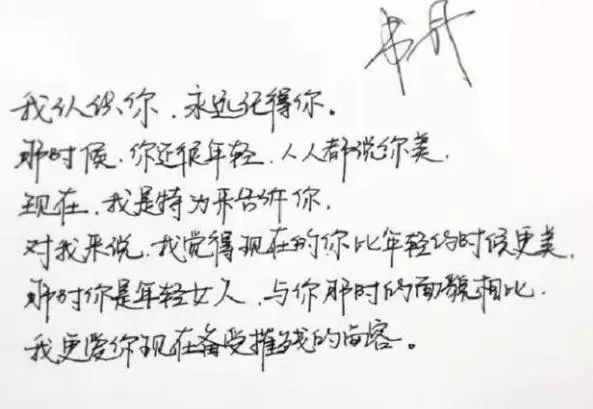 韦丹
我认识你，永远记得你。
那时候，你还很年轻，人人都说你美，
现在，我是特为来告诉你，
对我来说，我觉得现在的你比年轻的时候更美，
那时你是年轻女人，与你那时的面貌相比，
我更爱你现在备受摧残的面容。